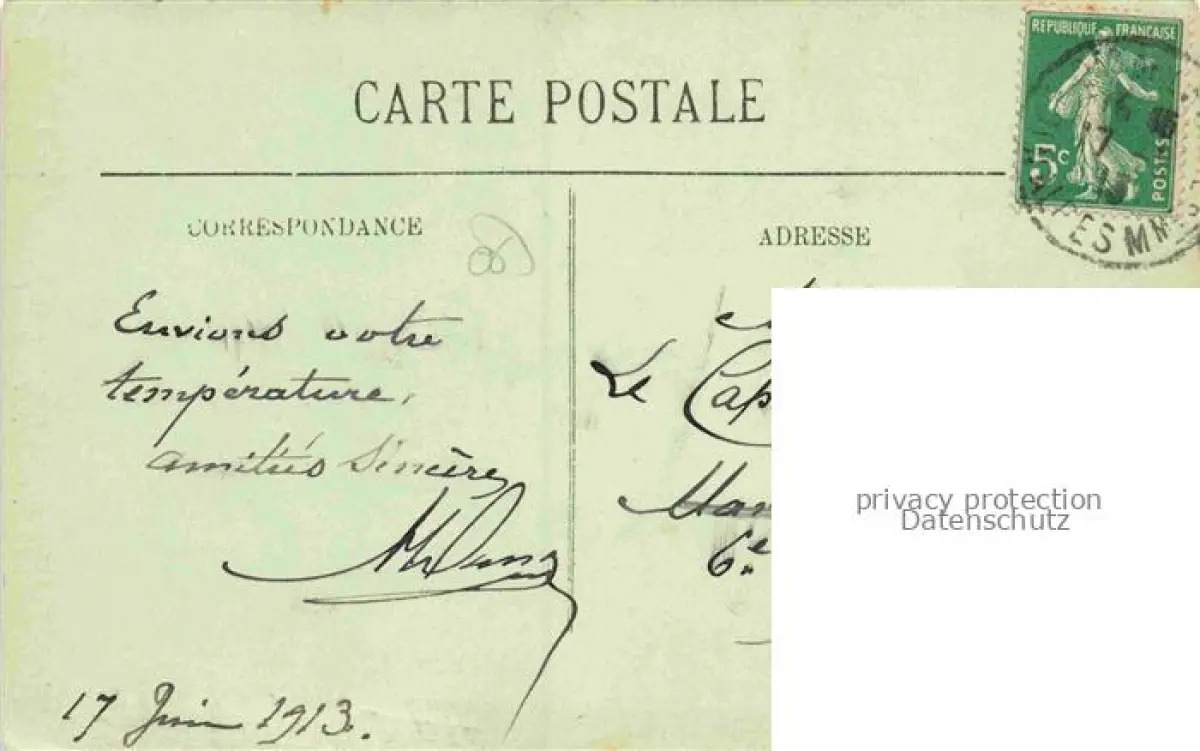 CARTE POSTALE
RÉPUBLIQUE FRANÇAISE
5c
POSTES
17
ES MM
CORRESPONDANCE
ADRESSE
Envions votre
température,
amitiés sincère
17 Juin 1913.
Le Cap
6e
privacy protection
Datenschutz